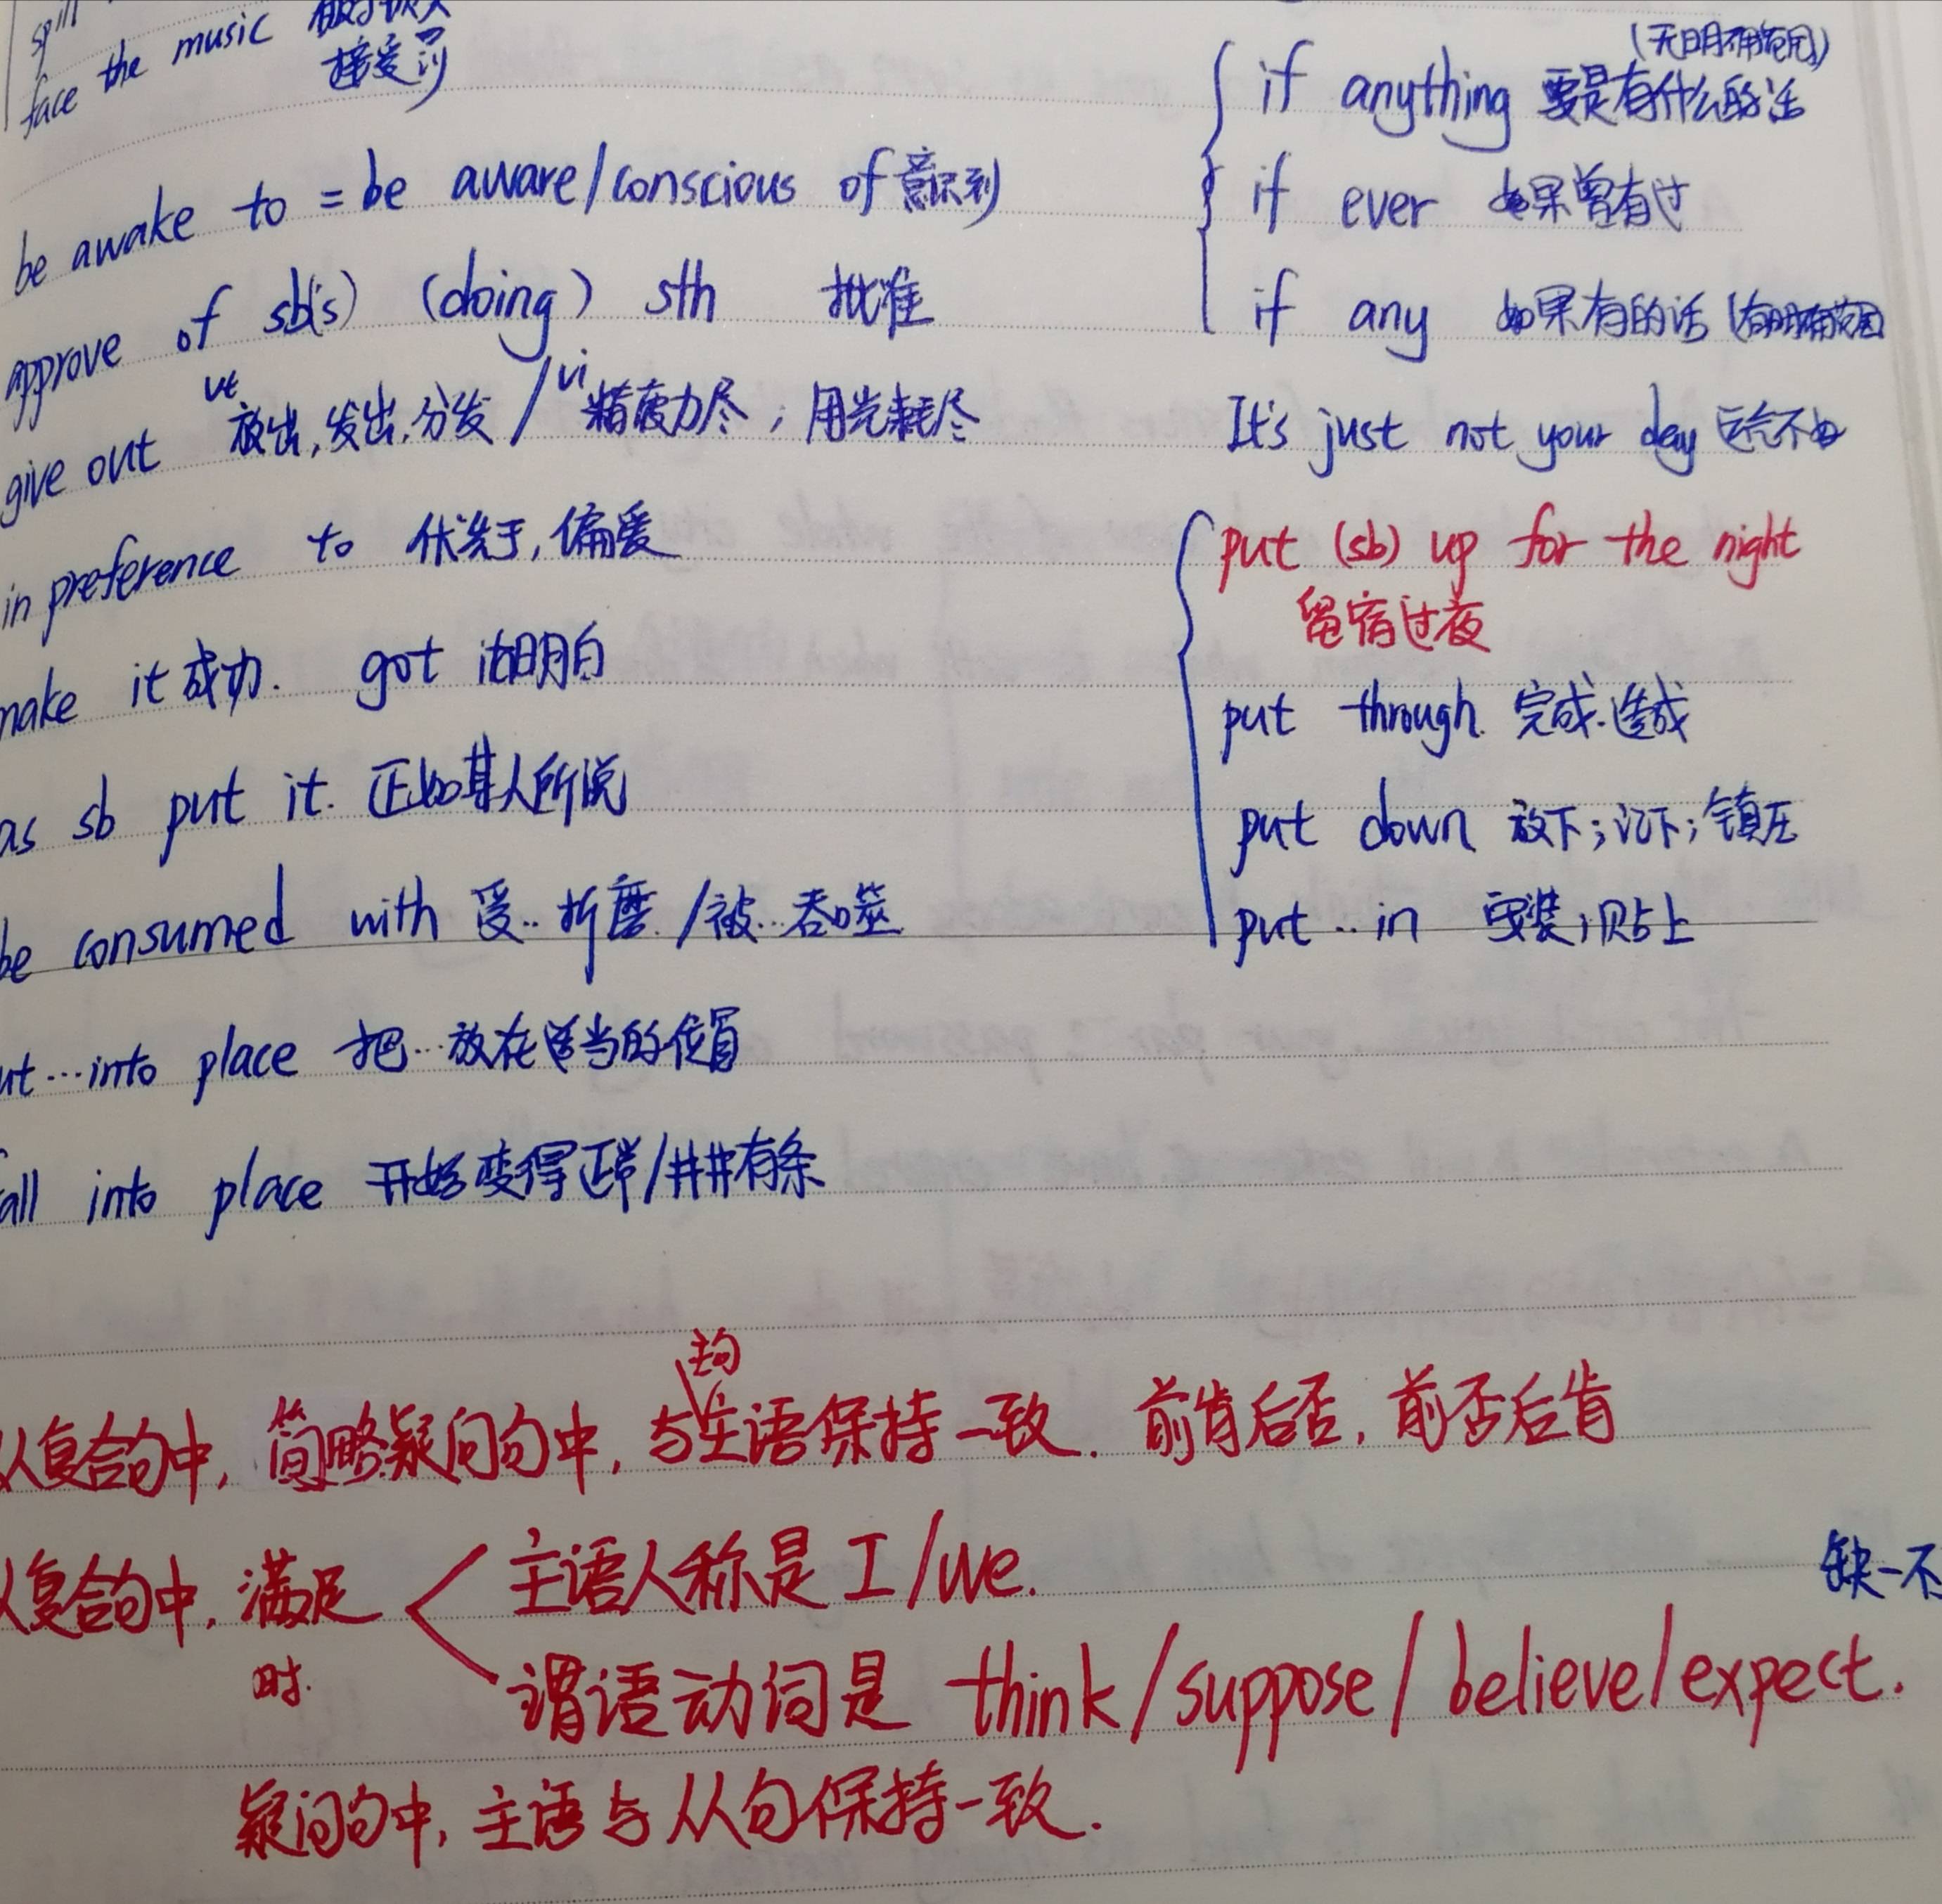 spill
face the music 敢于承认
接受罚
be awake to = be aware/conscious of 意识到
approve of sb('s) (doing) sth 批准
give out vt 放出,发出,分发 / vi 精疲力尽;用光耗尽
in preference to 优先于,偏爱
make it 成功. got it 明白
as sb put it. 正如某人所说
be consumed with 受..折磨 /被...吞噬
ut...into place 把...放在适当的位置
all into place 开始变得正常/井井有条
(无明确范围)
if anything 要是有什么的话
if ever 如果曾有过
if any 如果有的话 (有明确范围
It's just not your day 运气不好
put (sb) up for the night
留宿过夜
put through. 完成.造成
put down 放下;记下;镇压
put .. in 安装;贴上
从复合句中, 简略疑问句中, 与主句主语保持一致. 前肯后否, 前否后肯
从复合句中, 满足时.
主语人称是 I/we.
缺一不
谓语动词是 think/suppose/believe/expect.
疑问句中, 主语与从句保持一致.